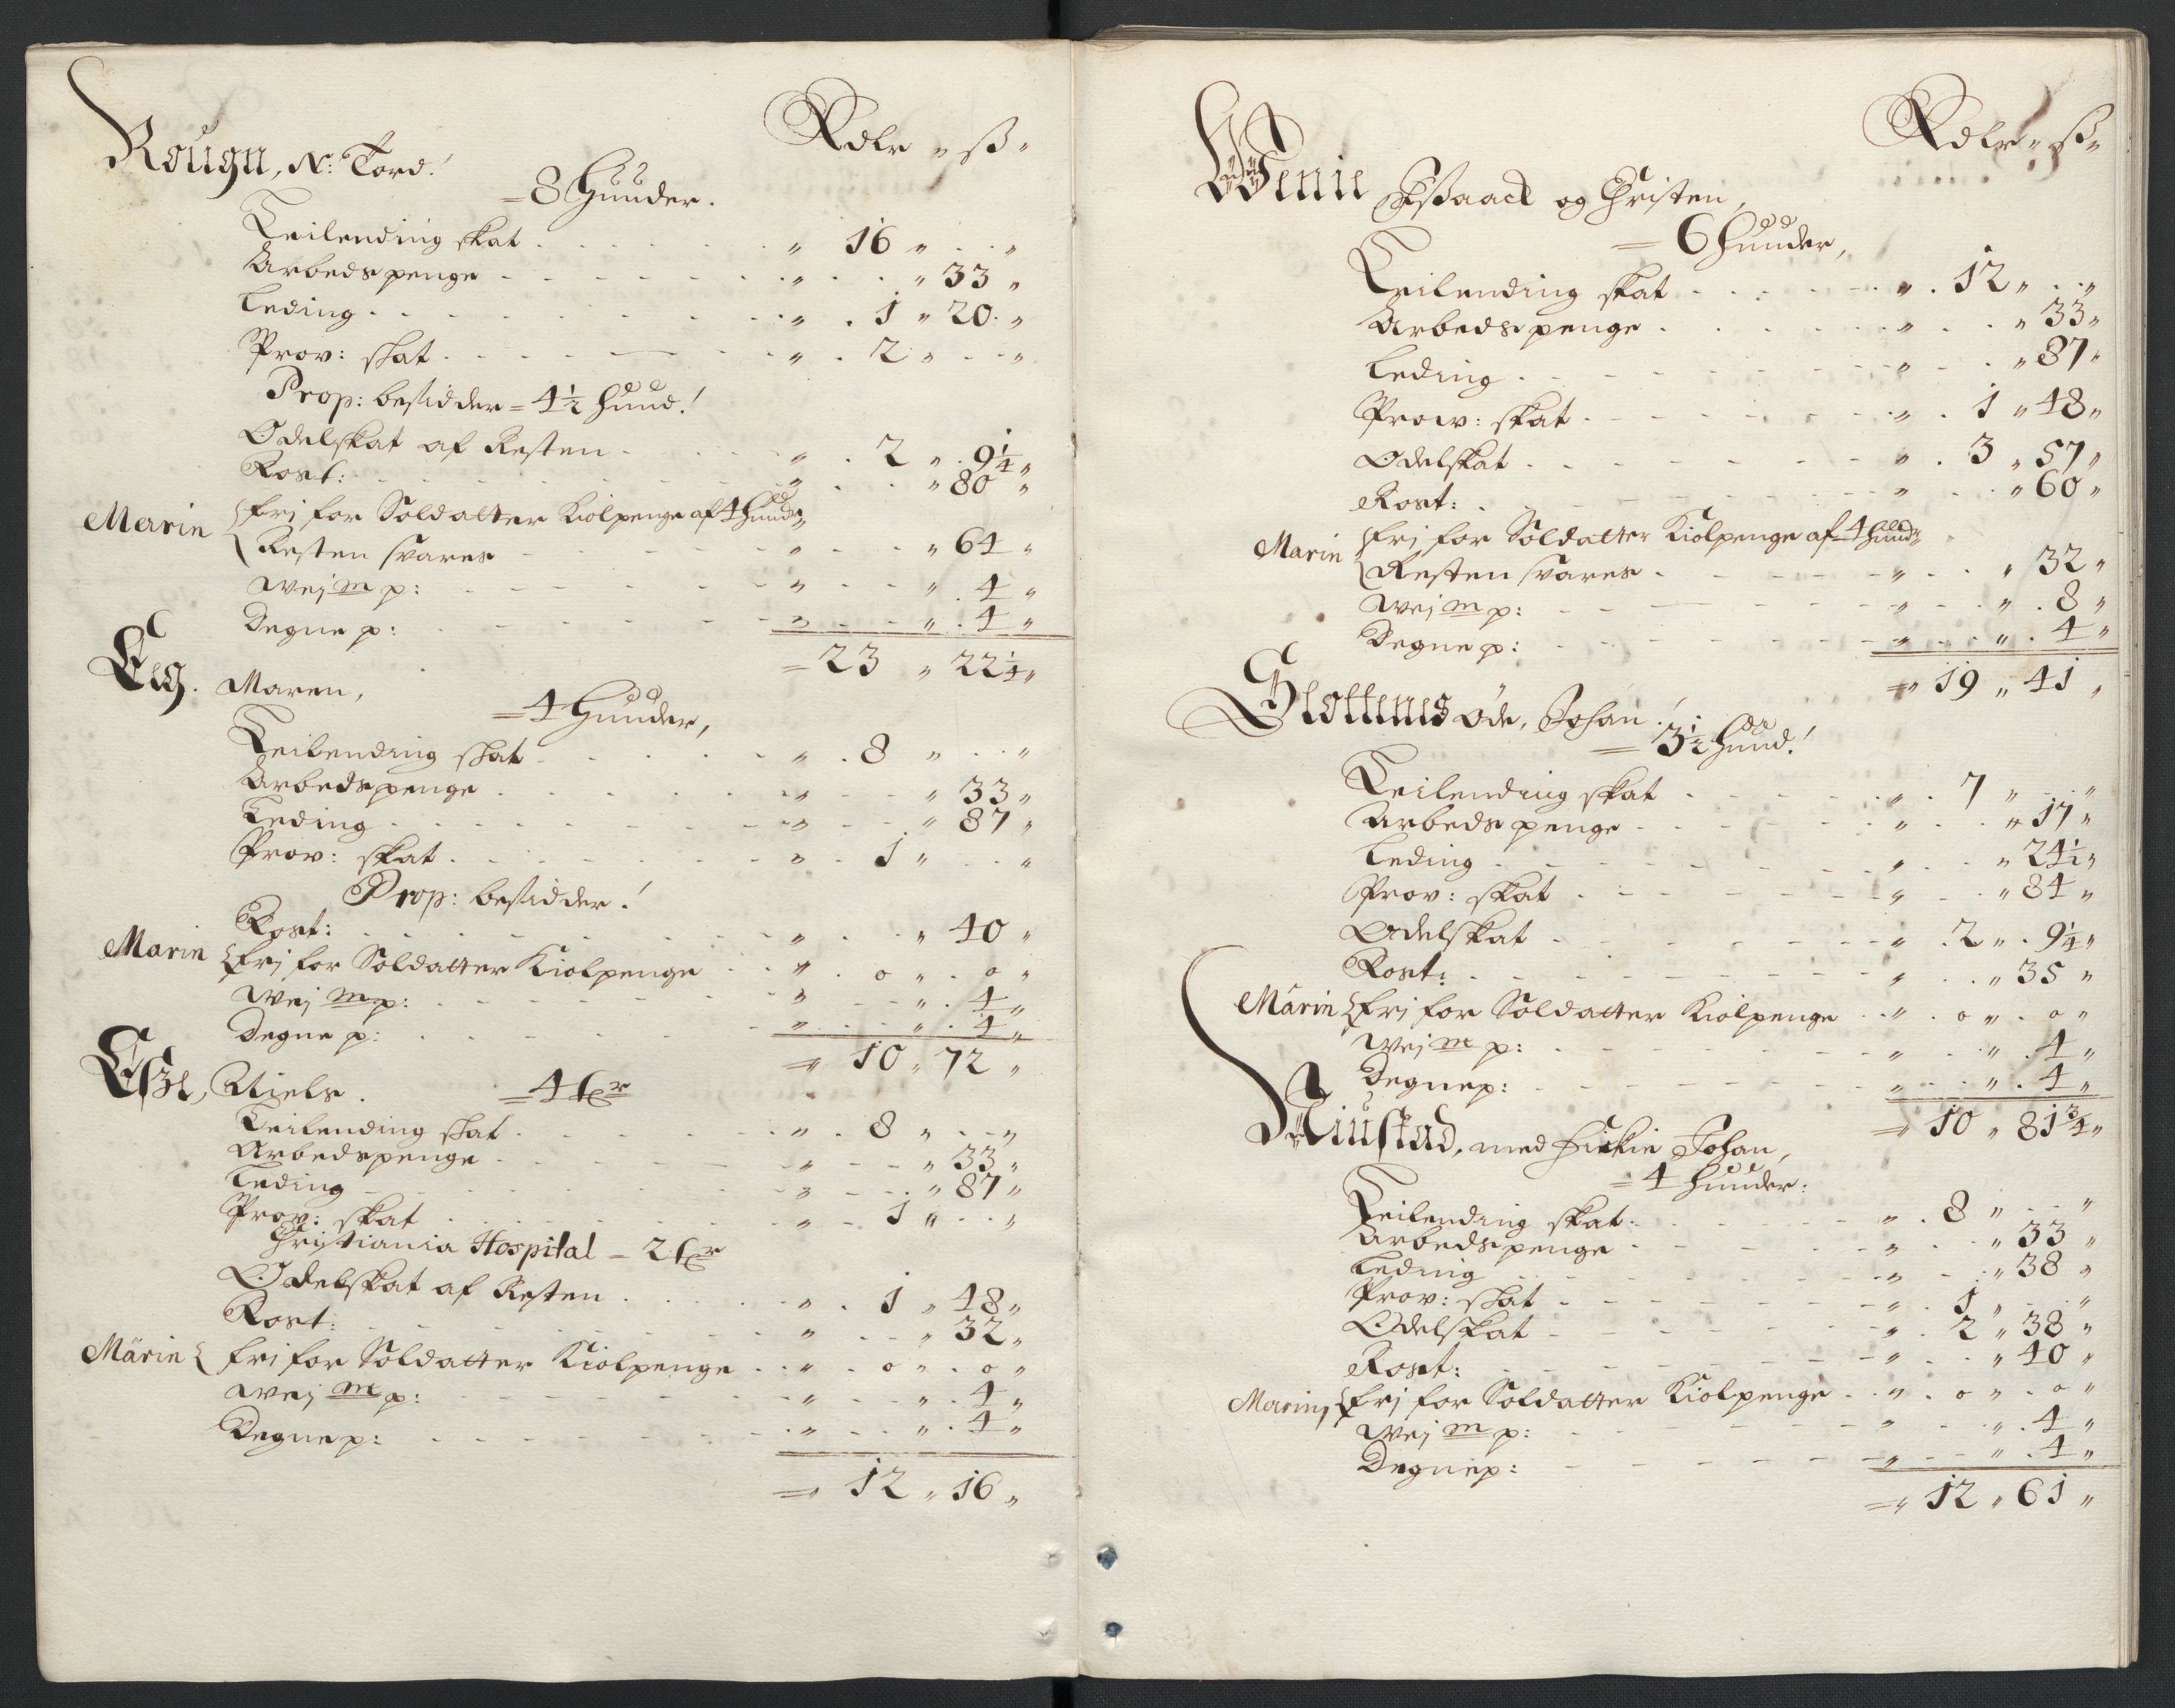 Rdlr " ß "
Rougu, N: Tord!
= 8 Huuder.
Leilending skat " 16 " "
Arbeds penge " " 33 "
Leding " 1 " 20 "
Prov: skat " 2 " "
Prop: besidder = 4½ huud!
Odelskat af Resten " 2 " 9¼ "
Rost: " " 80 "
Marin { fri for Soldatter Kiolpenge af 4 huudr
Resten svares " " 64 "
Wej m p: " " 4 "
Degne p: " " 4 "
= 23 " 22¼ "
Eeg. Maren,
= 4 Huuder,
Leilending skat " 8 " "
Arbedspenge " " 33 "
Leding " " 87 "
Prov: skat " 1 " "
Prop: besidder!
Rost: " " 40 "
Marin { fri for Soldatter Kiolpenge " 0 " 0 "
Wej m p: " " 4 "
Degne p: " " 4 "
= 10 " 72 "
Niels. = 4
Leilending skat " 8 " "
Arbedspenge " " 33 "
Leding " " 87 "
Prov: skat " 1 " "
Christiania Hospital = 2
Odelskat af Resten " 1 " 48 "
Rost: " " 32 "
Marin { fri for Soldatter Kiolpenge " 0 " 0 "
Wej m p: " " 4 "
Degne p: " " 4 "
= 12 " 16 "
Rdlr " ß "
Wenie Issaack og Christen,
= 6 huuder,
Leilending skat " 12 " "
Arbeds penge " " 33 "
Leding " " 87 "
Prow: skat " 1 " 48 "
Odelskat " 3 " 57 "
Rost: " " 60 "
Marin { fri for Soldatter Kiolpenge af 4 huudr
Resten svares " " 32 "
Wej m p: " " 8 "
Degne p: " " 4 "
= 19 " 41 "
Slottenes øde, Johan!
= 3½ huud!
Leilending skat " 7 " "
Arbeds penge " " 17 "
Leding " " 24½ "
Prov: skat " " 84 "
Odelskat " 2 " 9¼ "
Rost: " " 35 "
Marin { fri for Soldatter Kiolpenge " 0 " 0 "
Wej m p: " " 4 "
Degne p: " " 4 "
= 10 " 81¾ "
med Johan,
= 4 huuder:
Leilending skat " 8 " "
Arbeds penge " " 33 "
Leding " " 38 "
Prov: skat " 1 " "
Odelskat " 2 " 38 "
Rost: " " 40 "
Marin, { fri for Soldatter Kiolpenge " 0 " 0 "
Wej m p: " " 4 "
Degne p: " " 4 "
= 12 " 61 "